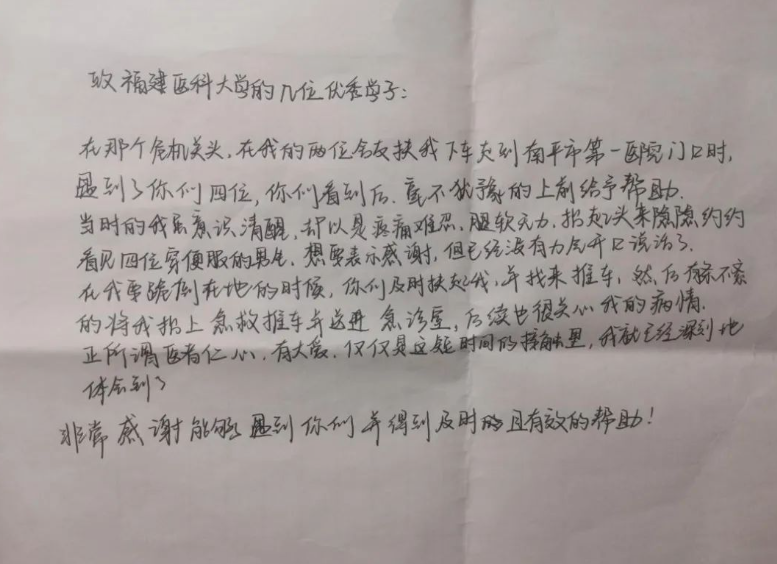 致福建医科大学的几位优秀学子：
在那个危机关头，在我的两位室友扶我下车走到南平市第一医院门口时，
遇到了你们四位，你们看到后，毫不犹豫的上前给予帮助。
当时的我虽意识清醒，却以是疼痛难忍，腿软无力，抬起头来隐隐约约
看见四位穿便服的男生，想要表示感谢，但已经没有力气开口说话了。
在我要跪倒在地的时候，你们及时扶起我，并找来推车，然后有条不紊
的将我抬上急救推车并送进急诊室，后续也很关心我的病情。
正所谓医者仁心，有大爱，仅仅是这短时间的接触里，我就已经深刻地
体会到了
非常感谢能够遇到你们并得到及时的且有效的帮助！